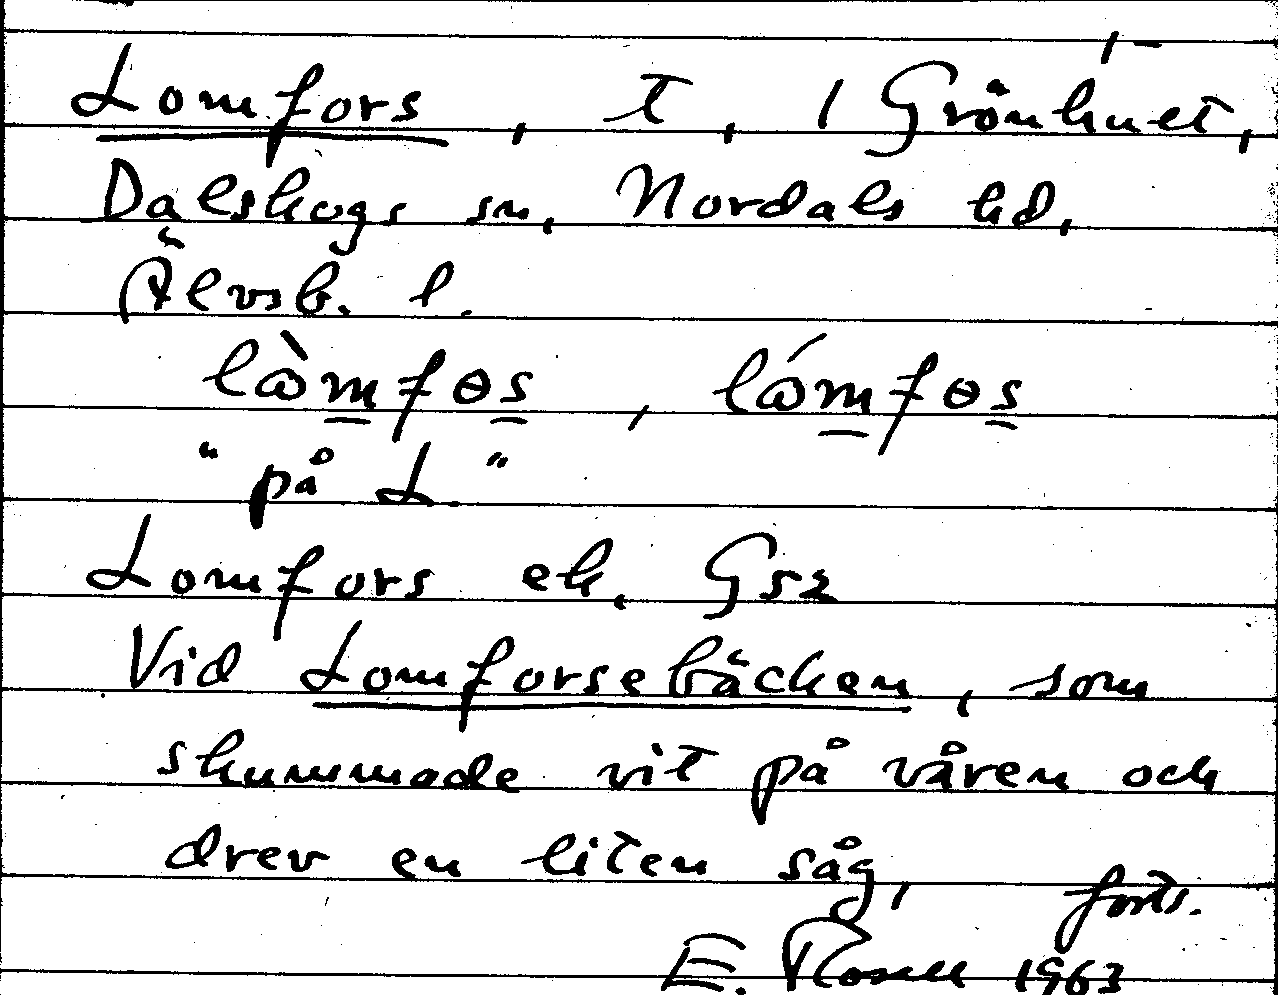 1-
Lomfors, t, 1 Grönhult,
Dalskogs sn, Nordals hd,
Älvsb. l.
lòmfɵs, lómfɵs
"på L."
Lomfors ek. Gs2
Vid Lomforsebäcken, som
skummade vit på våren och
drev en liten såg,
forts.
E. Rosell 1963